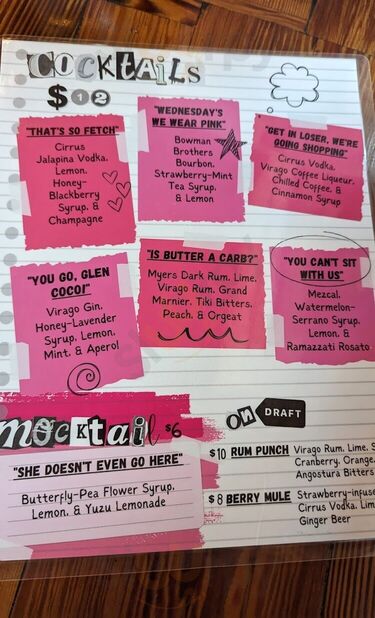 COCKTAILS
$12
"THAT'S SO FETCH"
Cirrus
Jalapina Vodka,
Lemon,
Honey-
Blackberry
Syrup, &
Champagne
"WEDNESDAY'S
WE WEAR PINK"
Bowman
Brothers
Bourbon,
Strawberry-Mint
Tea Syrup,
& Lemon
"GET IN LOSER, WE'RE
GOING SHOPPING"
Cirrus Vodka,
Virago Coffee Liqueur,
Chilled Coffee, &
Cinnamon Syrup
"YOU GO, GLEN
COCO!"
Virago Gin,
Honey-Lavender
Syrup, Lemon,
Mint, & Aperol
"IS BUTTER A CARB?"
Myers Dark Rum, Lime,
Virago Rum, Grand
Marnier, Tiki Bitters,
Peach, & Orgeat
"YOU CAN'T SIT
WITH US"
Mezcal,
Watermelon-
Serrano Syrup,
Lemon, &
Ramazzati Rosato
mocktail $6
"SHE DOESN'T EVEN GO HERE"
Butterfly-Pea Flower Syrup,
Lemon, & Yuzu Lemonade
ON DRAFT
$10 RUM PUNCH Virago Rum, Lime, S
Cranberry, Orange,
Angostura Bitters
$8 BERRY MULE Strawberry-infuse
Cirrus Vodka, Lim
Ginger Beer